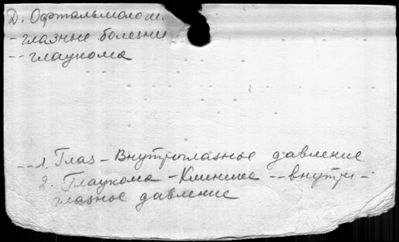 Д. Офтальмолог.
- глазные болезни
-- глаукома
-- 1. Глаз - Внутриглазное давление
2. Глаукома - Клиника -- внутри -
глазное давление